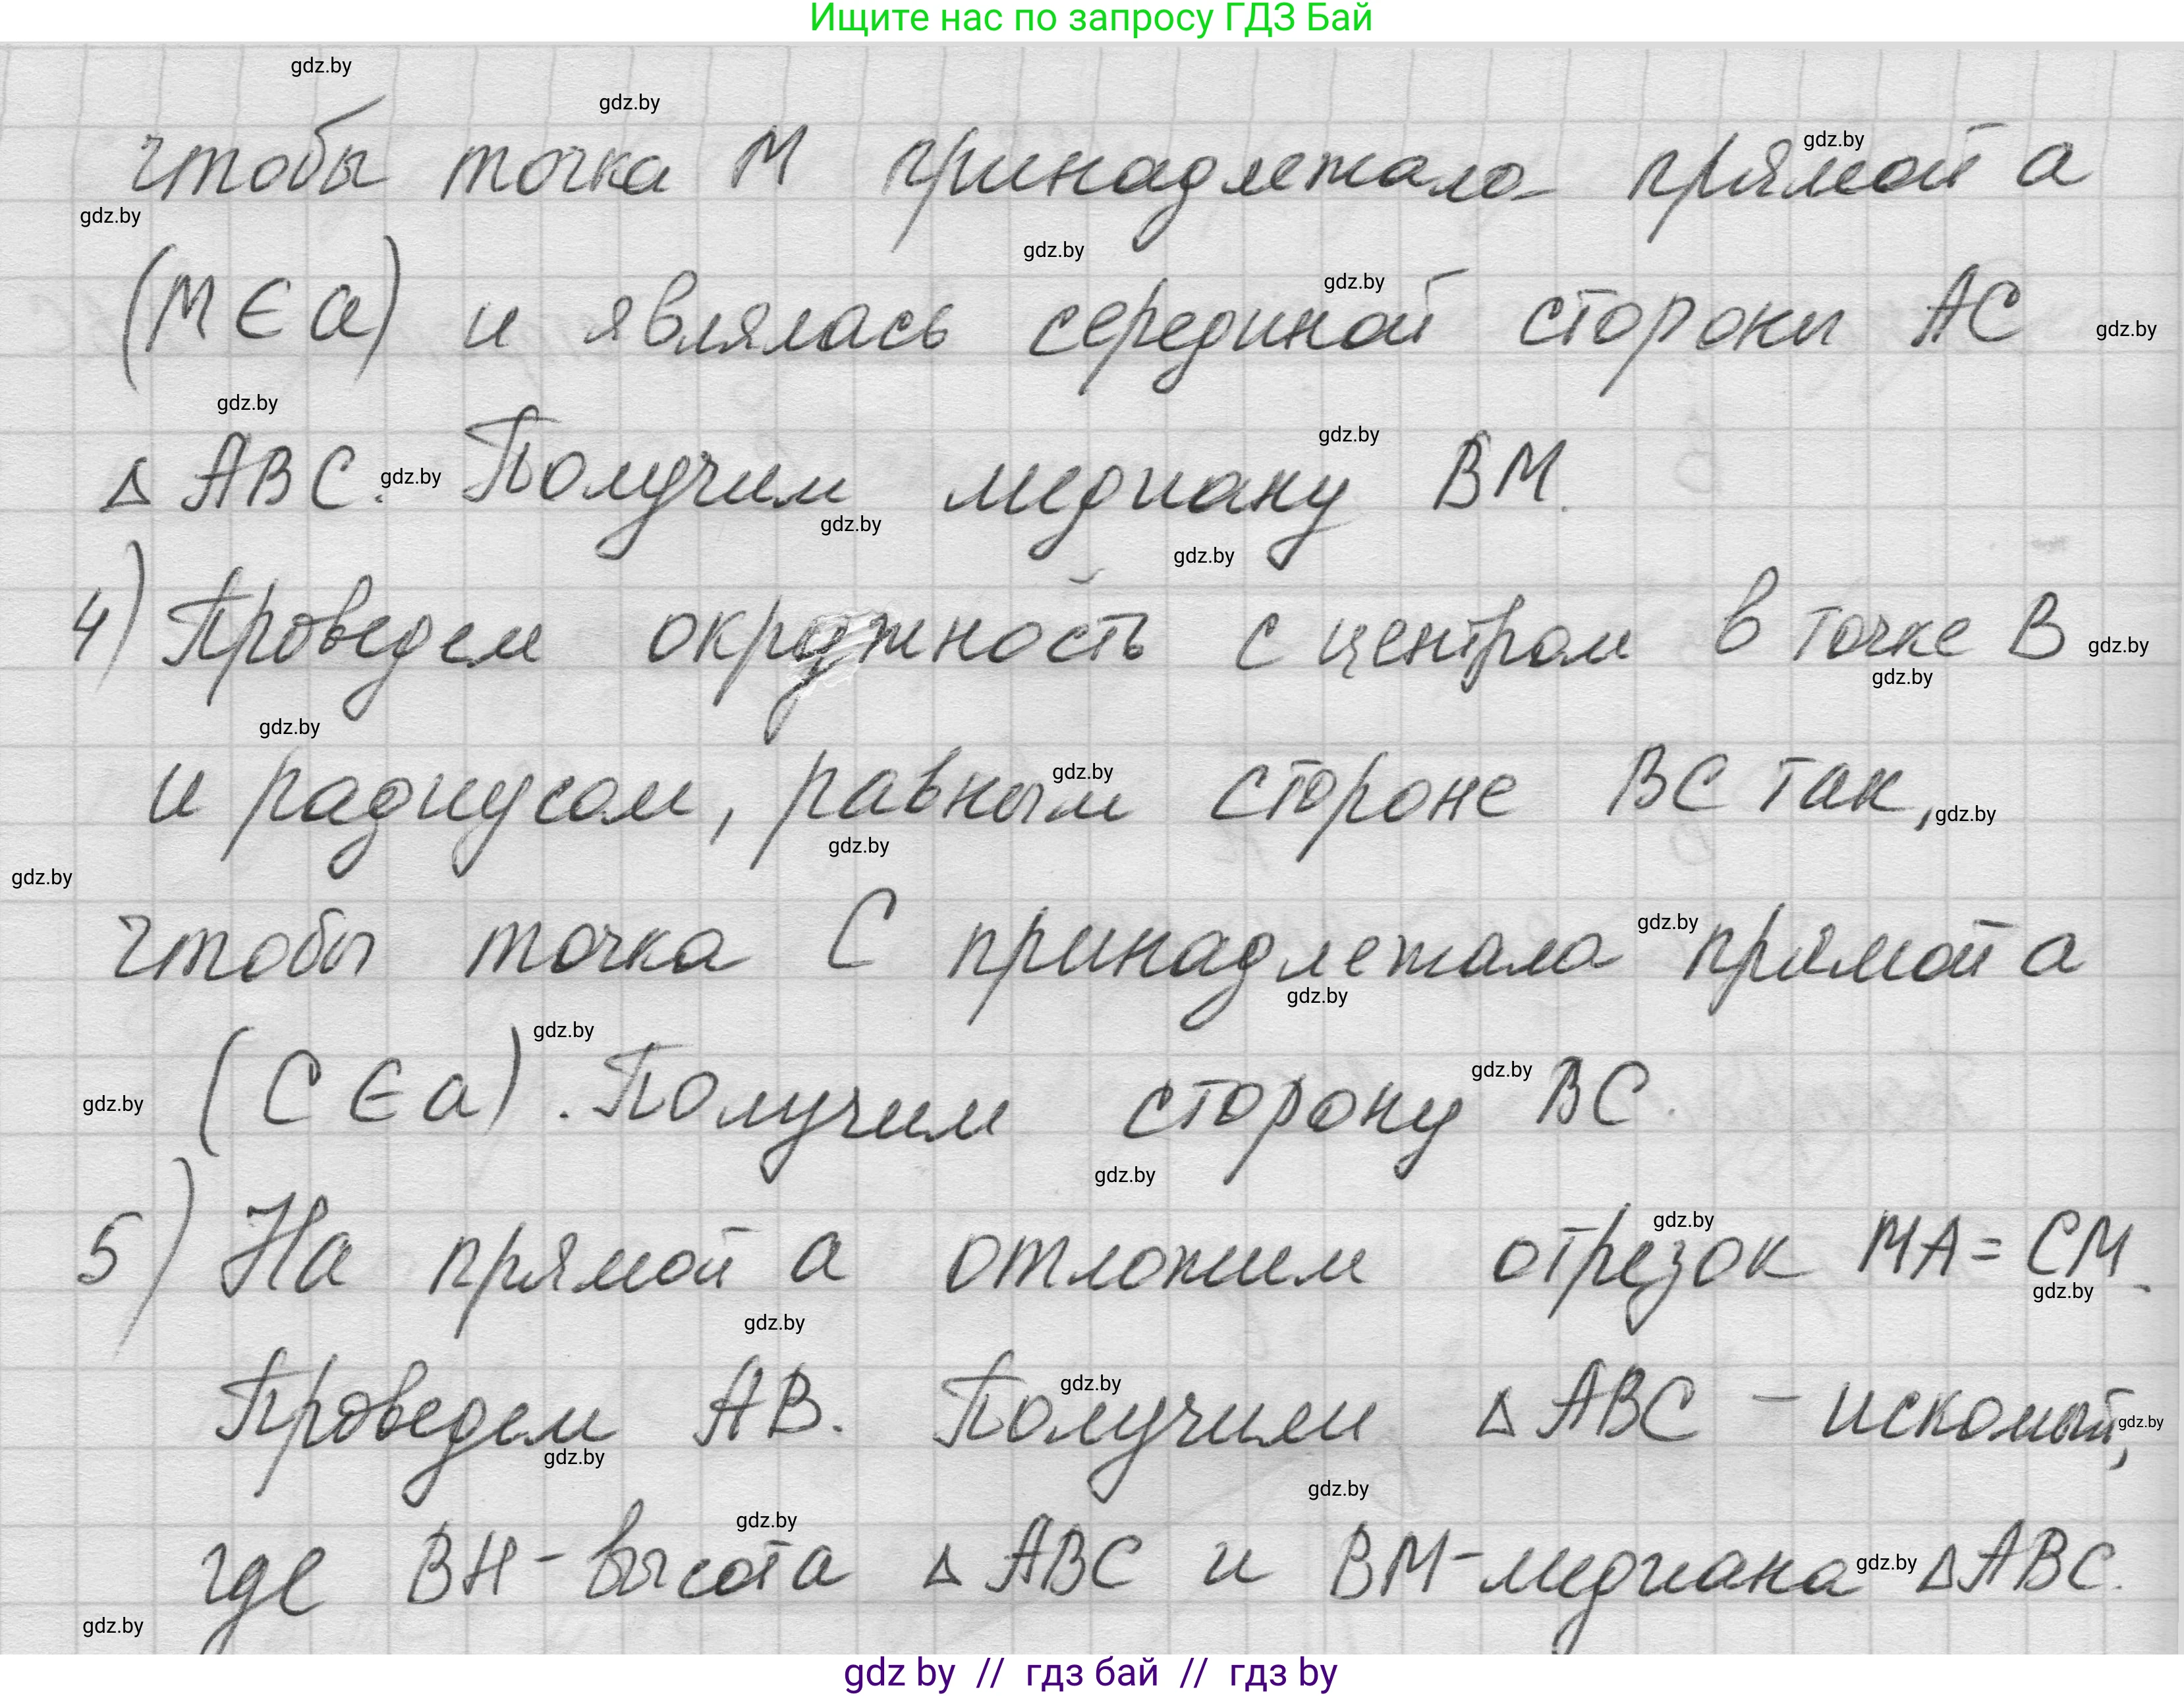 Ищите нас по запросу ГДЗ Бай
gdz.by
gdz.by
чтобы точка М принадлежало прямой а
gdz.by
gdz.by
gdz.by
gdz.by
(М ∈ а) и являлась серединой стороны АС
gdz.by
gdz.by
gdz.by
△ АВС. Получим медиану ВМ.
gdz.by
gdz.by
gdz.by
4) Проведем окружность с центром в точке В
gdz.by
gdz.by
gdz.by
и радиусом, равным стороне ВС так,
gdz.by
gdz.by
gdz.by
gdz.by
чтобы точка С принадлежала прямой а
gdz.by
gdz.by
gdz.by
(С ∈ а). Получим сторону ВС.
gdz.by
gdz.by
gdz.by
5) На прямой а отложим отрезок МА = СМ.
gdz.by
gdz.by
gdz.by
Проведем АВ. Получим △ АВС – искомый,
gdz.by
gdz.by
gdz.by
gdz.by
где ВН – высота △ АВС и ВМ – медиана △АВС.
gdz.by
gdz.by
gdz.by
gdz by // гдз бай // гдз by